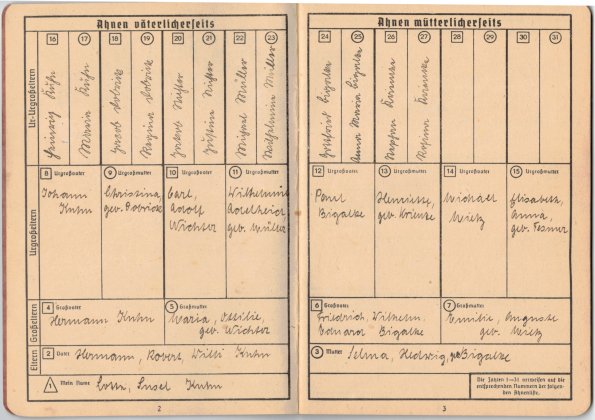 Ahnen väterlicherseits
Ur-Urgroßeltern
16 17 18 19 20 21 22 23
Maria Kuhn
Jacob Dobrick
Regina Dobrick
Jacob
Justine
Michael Müller
Wilhelmine Müller
Urgroßeltern
8 Urgroßvater
Johann
Kuhn
9 Urgroßmutter
Christina,
geb. Dobrick
10 Urgroßvater
Carl,
Adolf
Wichter
11 Urgroßmutter
Wilhelmine
Adelheid,
geb. Müller
Großeltern
4 Großvater
Hermann Kuhn
5 Großmutter
Maria, Ottilie,
geb. Wichter
Eltern
2 Vater Hermann, Robert, Willi Kuhn
1 Mein Name Lotte, Susel Kuhn
2
Ahnen mütterlicherseits
24 25 26 27 28 29 30 31
Gottfried Bigalke
Anna Maria Bigalke
12 Urgroßvater
Paul
Bigalke
13 Urgroßmutter
Henriette,
geb. Krienke
14 Urgroßvater
Michael
Mietz
15 Urgroßmutter
Elisabeth,
Anna,
geb. Fesner
6 Großvater
Friedrich, Wilhelm
Eduard Bigalke
7 Großmutter
Emilie, Auguste
geb. Mietz
3 Mutter Selma, Hedwig, geb. Bigalke
Die Zahlen 1—31 verweisen auf die
entsprechenden Nummern der folgen-
den Ahnenliste.
3